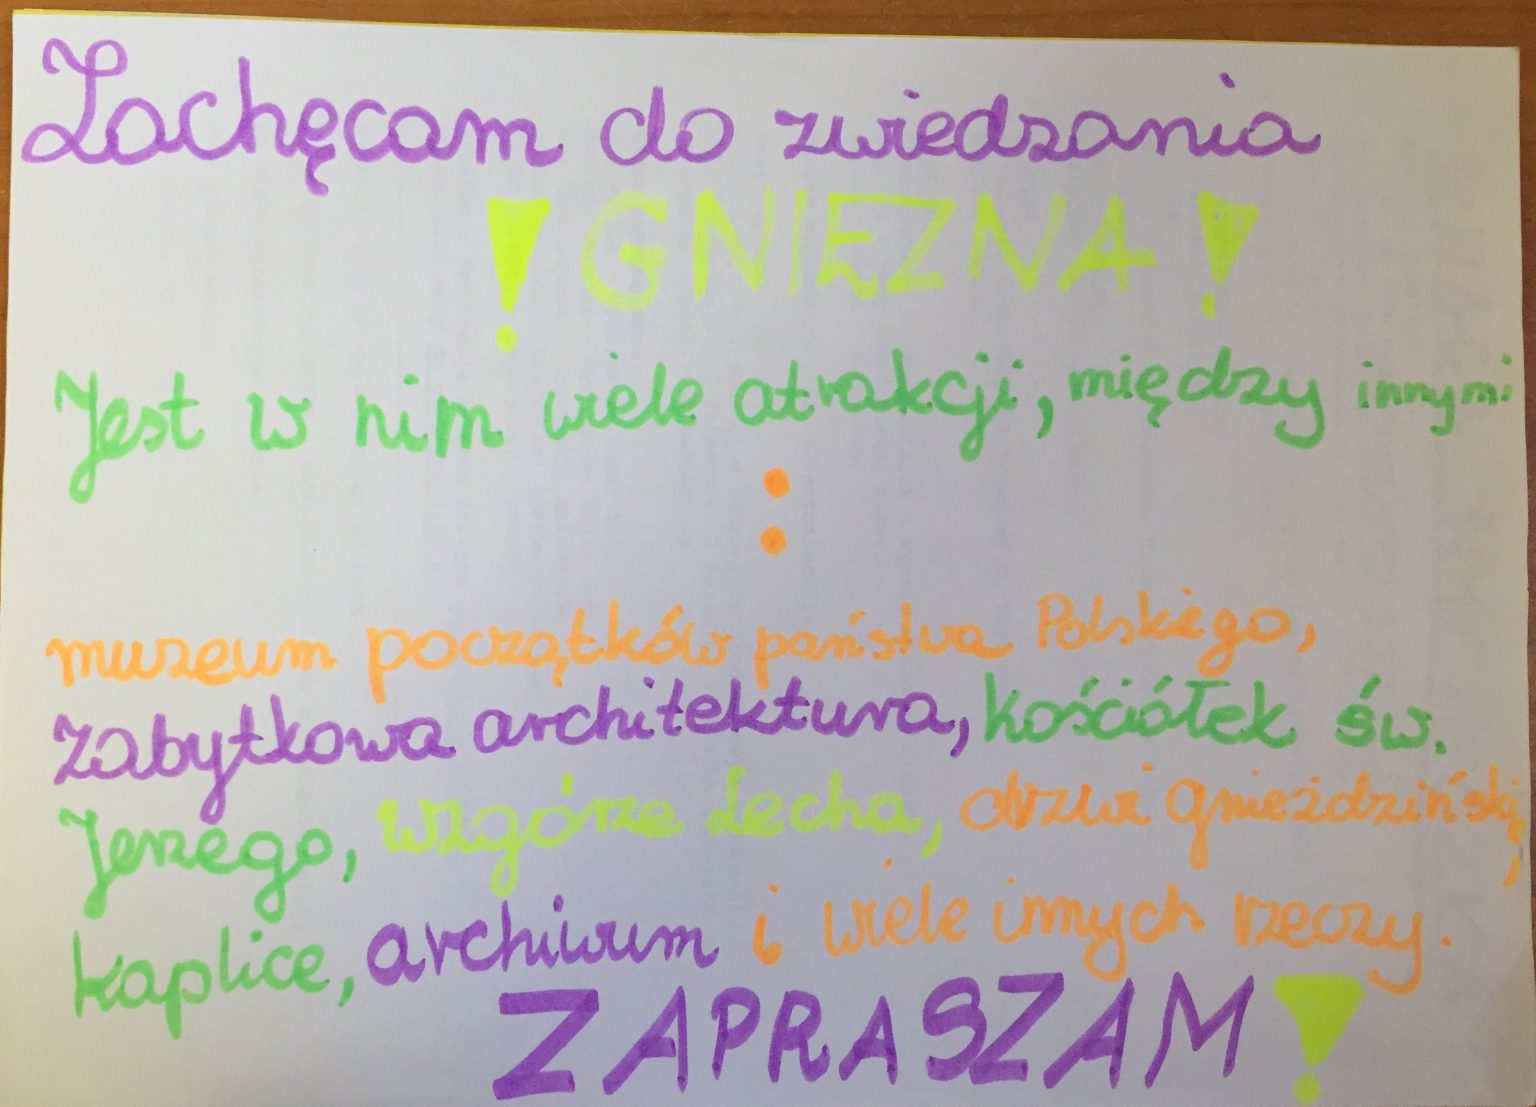 Zachęcam do zwiedzania
! GNIEZNA !
Jest w nim wiele atrakcji, między innymi
:
muzeum początków państwa Polskiego,
zabytkowa architektura, kościółek św.
Jerzego, wzgórze Lecha, drzwi Gnieździński,
kaplice, archiwum i wiele innych rzeczy.
ZAPRASZAM!